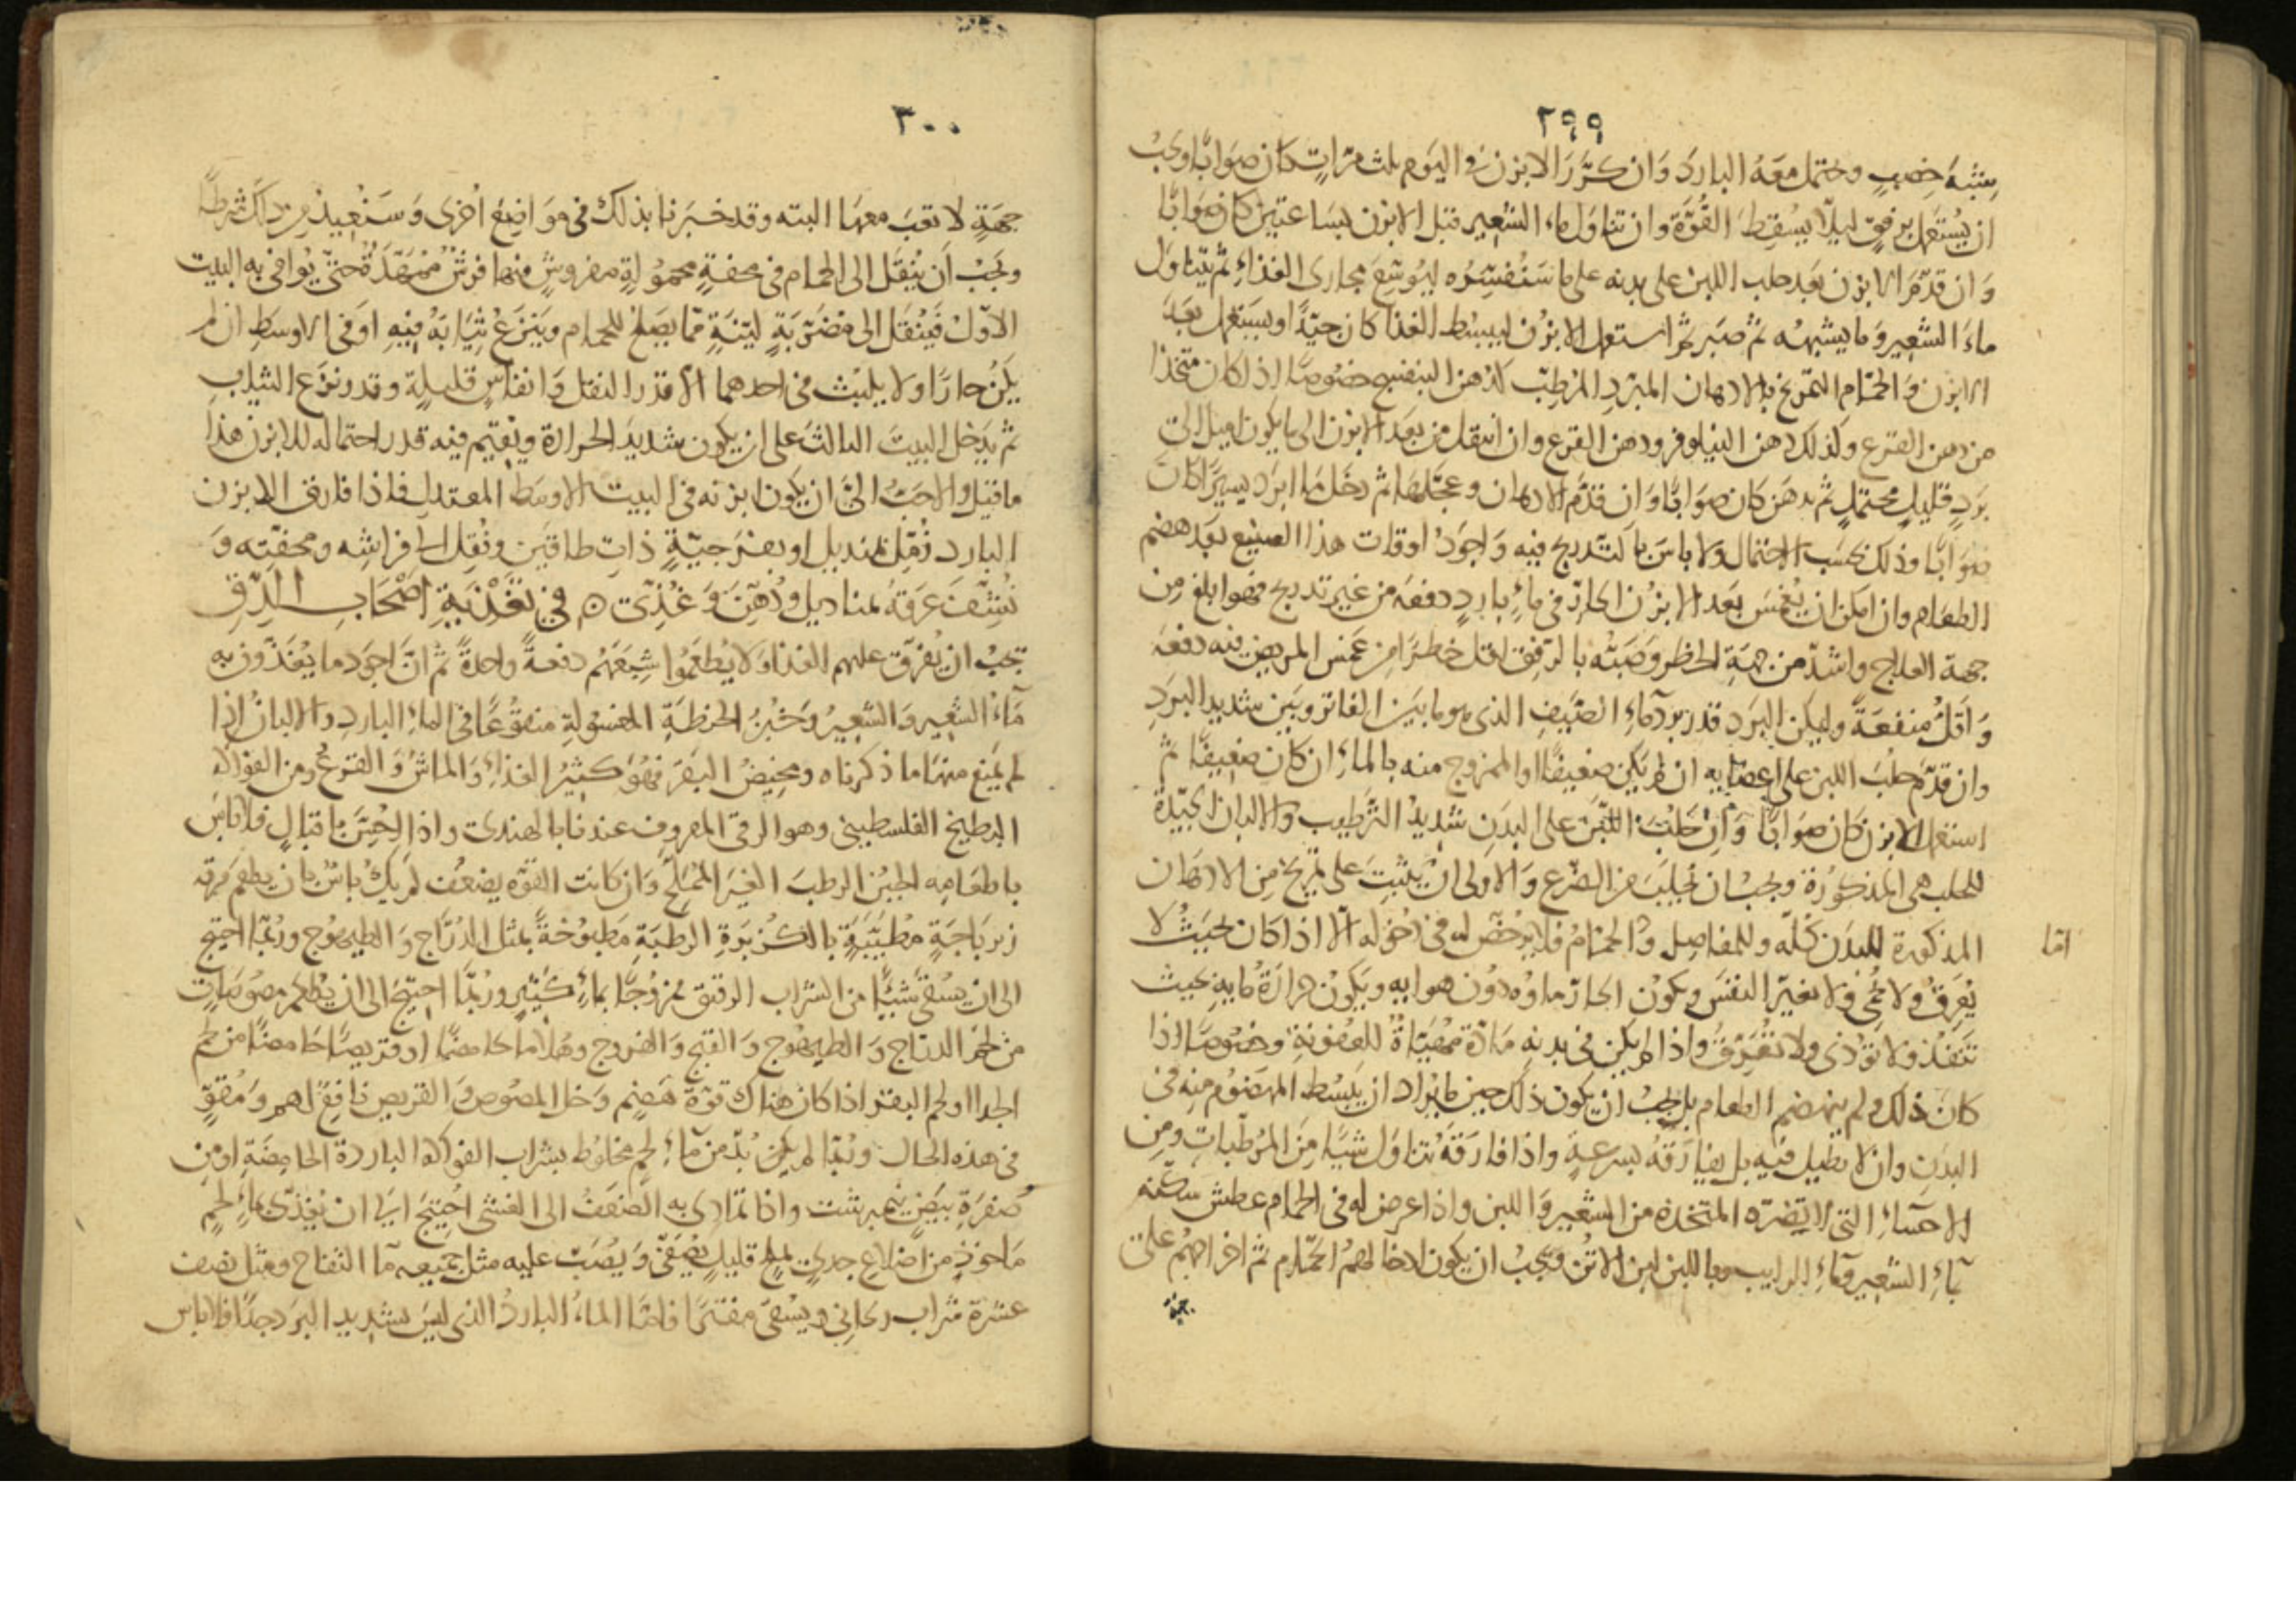 ٢٩٩
بشبه خصب وحتمل معه البارد وان كرر الابزن في اليوم ثلث مرات كان صوابا ويجب
ان يستعمل برفق ليلا يسقط القوة وان تناول ماء الشعير قبل الابزن بساعتين كان صوابا
وان قدم الابزن بعد حلب اللبن على بدنه على ما سنفسره ليوسع مجارى الغذاء ثم يتناول
ماء الشعير وما يشبهه ثم صبر ثم استعمل الابزن ليبسط الغذا كان جيدا ويستعمل بعد
الابزن والحمام التمريخ بالادهان المبرد المرطب كدهن البنفسج خصوصا اذا كان متخذا
من دهن القرع وكذلك دهن النيلوفر ودهن القرع وان انتقل من بعد الابزن الى ما يكون اميل الى
برد قليل محتمل ثم يدهن كان صوابا وان قدم الادهان وعجلها ثم دخل ماء ابرد يسيرا كان
صوابا وذلك بحسب الاحتمال ولا باس بالتدريج فيه واجود اوقات هذا الصنيع بعد هضم
الطعام وان امكن ان يغمس بعد الابزن الحار في ماء بارد دفعة من غير تدريج فهو ابلغ من
جهة العلاج واشد من جهة الخطر وصبه بالرفق اقل خطرا من غمس المريض فيه دفعة
واقل منفعة وليكن البرد قدر برد ماء الصيف الذى هو ما بين الفاتر وبين شديد البرد
وان قدم حلب اللبن على اعضايه ان لم يكن ضعيفا او الممزوج منه بالماء ان كان ضعيفا ثم
استعمل الابزن كان صوابا وان حلب اللبن على البدن شديد الترطيب والالبان الجيدة
للحلب هى المذكورة ويجب ان يحلب من الضرع والاولى ان يثبت على تمريخ من الادهان
المذكورة للبدن كله وللمفاصل و الحمام فلا يرخص له في دخوله الا اذا كان بحيث لا
اما
يعرق ولا يحمى ولا يغير النفس ويكون الحار ماوه دون هوايه ويكون حرارة مايه بحيث
تنفذ ولا توذى ولا تعرق واذا لم يكن في بدنه مادة مهيأة للعفونة وخصوصا اذا
كان ذلك ولم ينهضم الطعام بل يجب ان يكون ذلك حين ما يراد ان يبسط المهضوم منه في
البدن وان لا يطيل فيه بل يفارقه بسرعة واذا فارقه تناول شيئا من المرطبات ومن
الاحساء التي لا تضره المتخذة من الشعير واللبن واذا عرض له في الحمام عطش سكنه
بماء الشعير وماء الرايب وباللبن لبن الاتن ويجب ان يكون ادخالهم الحمام ثم اخراجهم على
جهة
٣٠٠
جهة لا تعب معها البته وقد خبرنا بذلك في مواضع اخرى وسنعيد من ذلك شرطا
ويجب ان ينقل الى الحمام في محفة محمولة مفروش منها فرش ممهدة حتى يوافى به البيت
الاول فينقل الى مضربة لينة مما يصلح للحمام وينزع ثيابه فيه او في الاوسط ان لم
يكن حارا ولا يلبث في احدهما الا قدر النقل وانفاس قليلة وقد ونزع الثياب
ثم يدخل البيت الثالث على ان يكون شديد الحرارة ويقيم فيه قدر احتماله للابزن هذا
ما قيل والاحب الى ان يكون ابزنه في البيت الاوسط المعتدل فاذا فارق الابزن
البارد زمل بمنديل او بفرجية ذات طاقين ونقل الى فراشه ومحفته و
نشف عرقه بمناديل ودهن وغذى ٥ في تغذية اصحاب الدق
يجب ان يفرق عليهم الغذا ولا يطعموا شبعهم دفعة واحدة ثم ان اجود ما يغذون به
ماء الشعير والشعير وخبز الحنطة المغسولة منقوعا في الماء البارد والالبان اذا
لم يمنع منها ما ذكرناه ومخيض البقر فهو كثير الغذاء والماش والقرع ومن الفواكه
البطيخ الفلسطيني وهو الرقى المعروف عندنا بالهندى واذا لم يحس باقبال فلا باس
باطعامه الجبن الرطب الغير المملح وان كانت القوه يضعف لم يك باس بان يطعم مرقه
زيرباجة مطيبة بالكزبرة الرطبة مطبوخة بمثل الدراج والطيهوج وربما احتيج
الى ان يسقى شيئا من الشراب الرقيق ممزوجا بماء كثير وربما احتيج الى ان يطعم مصوصات
من لحم الدراج و الطيهوج و القبج و الفروج وهلاما حامضا او قريصا حامضا من لحم
الجدا او لحم البقر اذا كان هناك قوة هضم وخل المصوص والقريص نافع لهم ومقو
في هذه الحال وربما لم يكن بد من ماء لحم مخلوط بشراب الفواكه الباردة الحامضة او من
صفرة بيض نيمبرشت واذا تمادى به الضعف الى الغشى احتيج ايضا ان يغذى بماء لحم
ماخوذ من اضلاع جدى بملح قليل يصفى ويصب عليه مثل جميعه ماء التفاح ومثل نصف
عشرة شراب ريحاني ويسقى مفترا فاما الماء البارد الذى ليس بشديد البرد جدا فلا باس